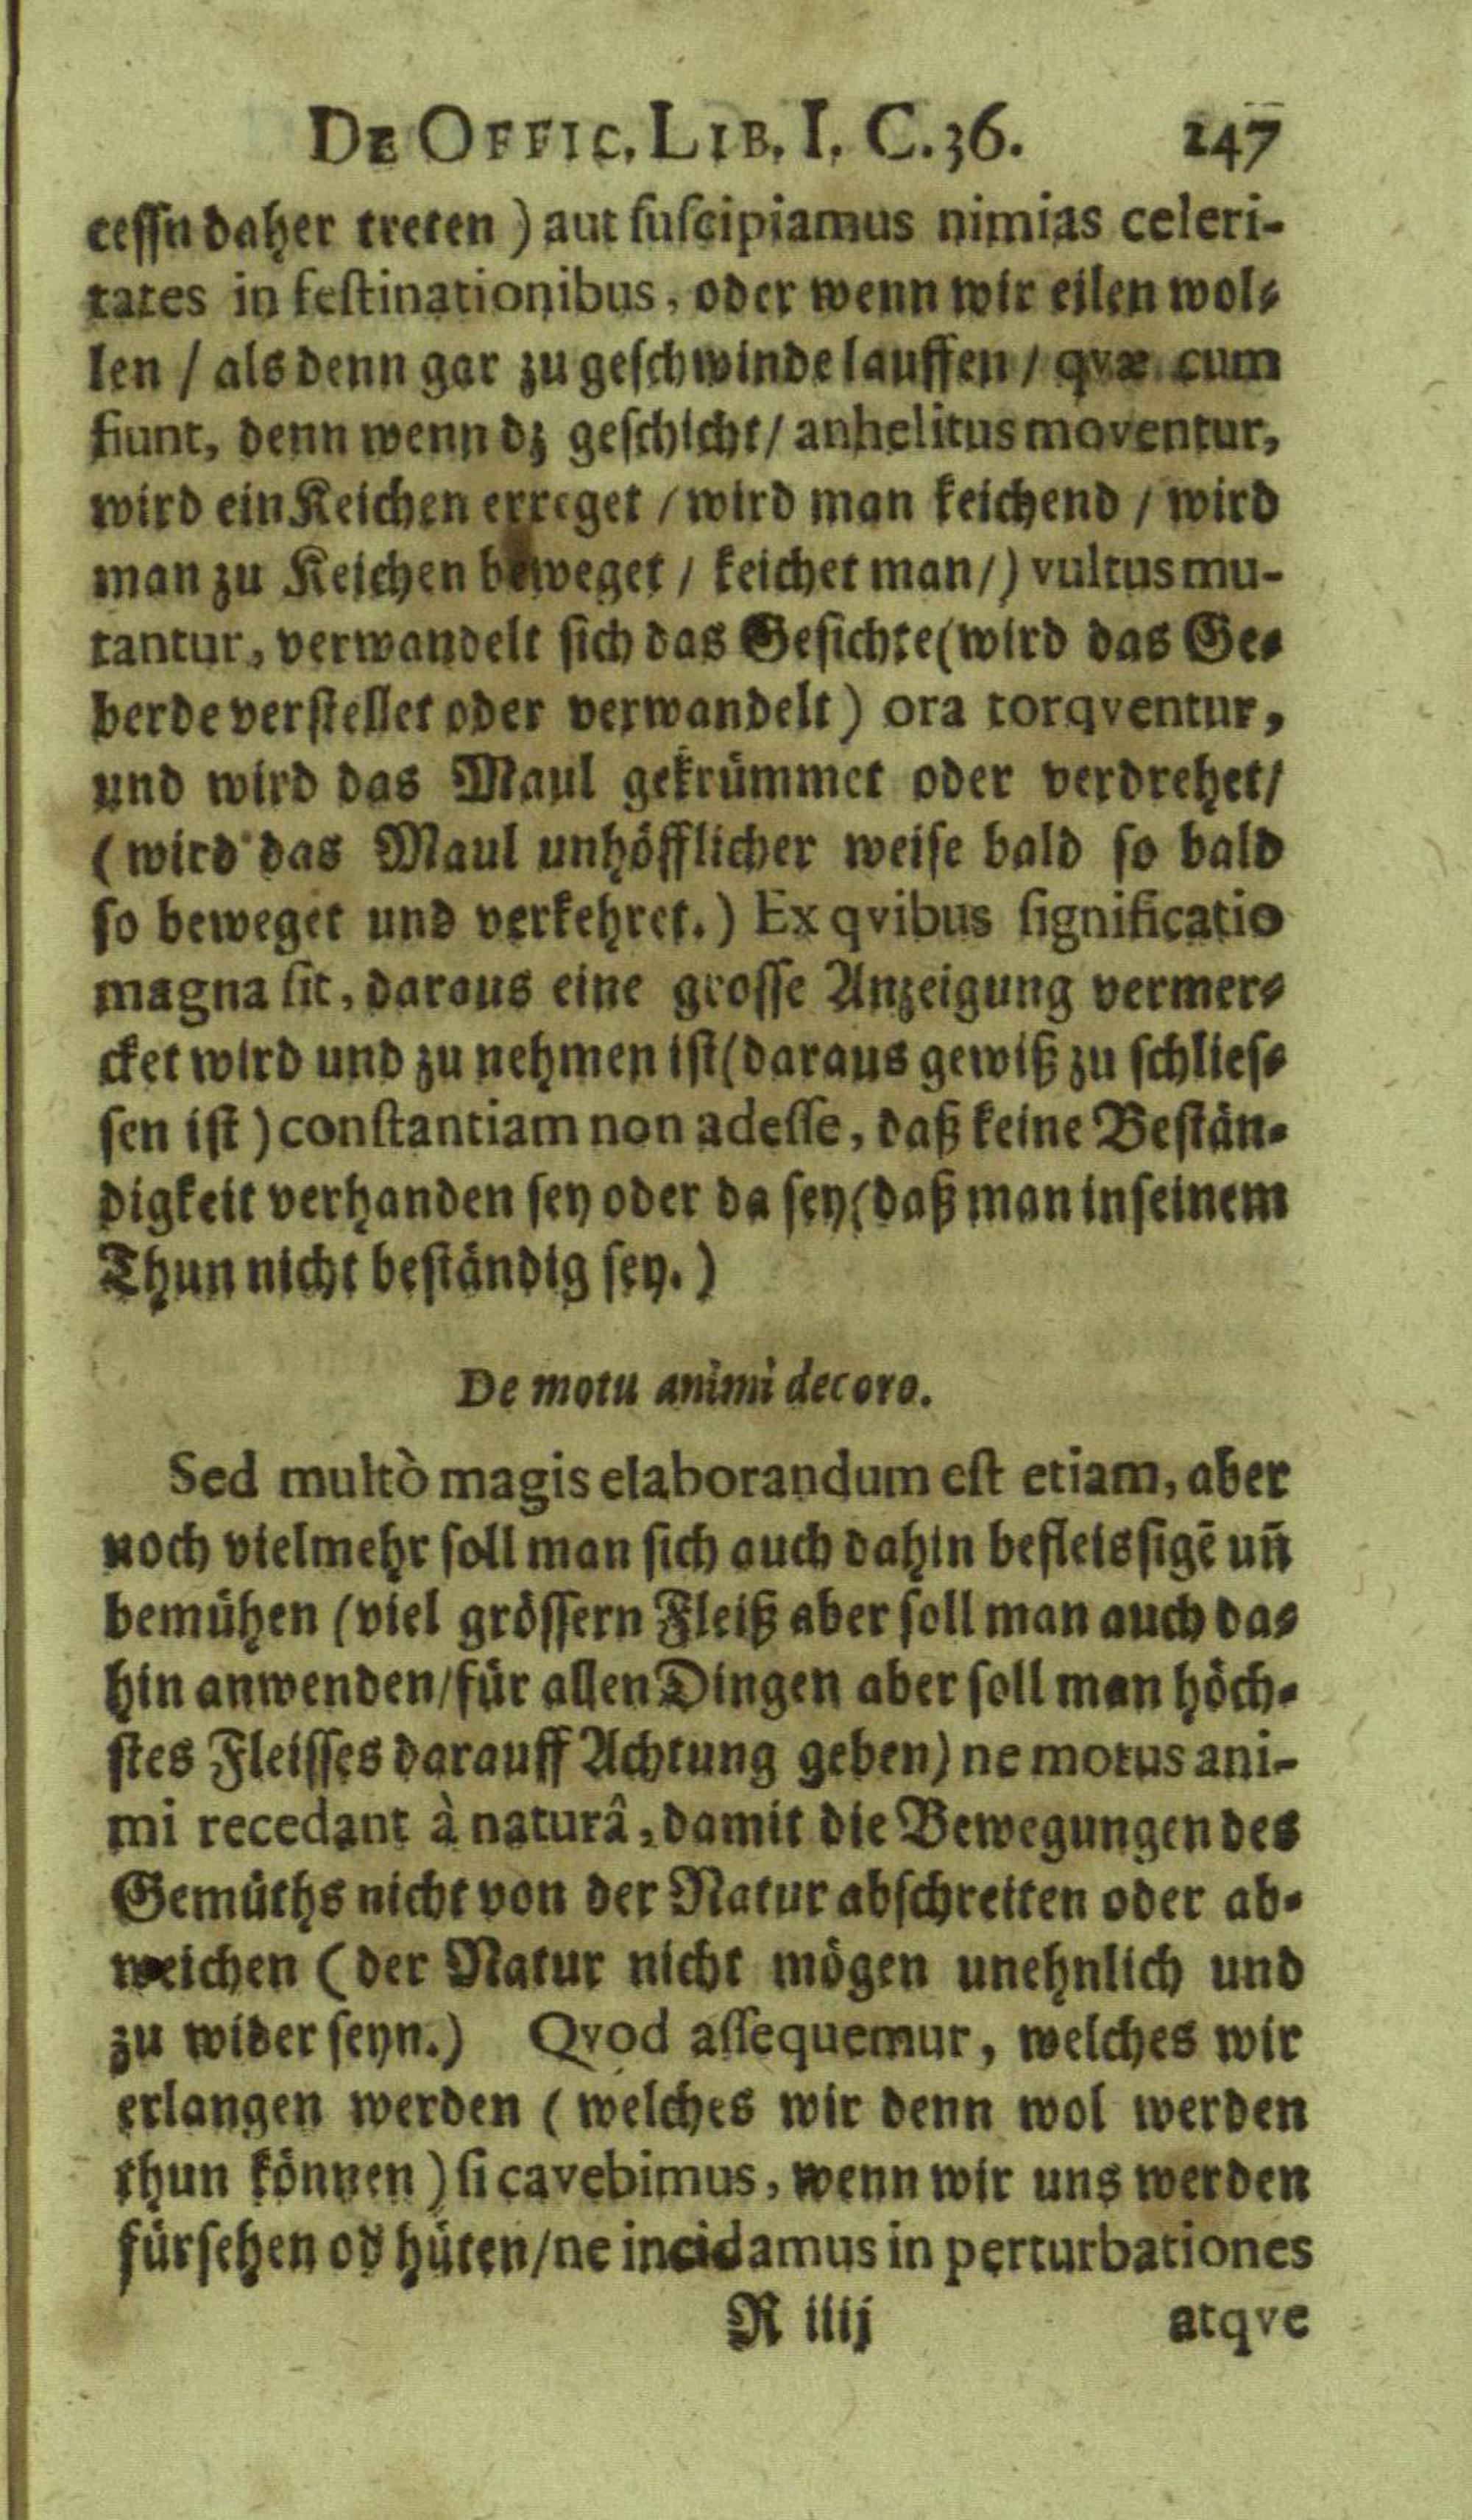 DE OFFIC. LIB. I. C. 36. 247
cessn daher treten ) aut suscipiamus nimias celeri-
tates in festinationibus, oder wenn wir eilen wol-
len / als denn gar zu geschwinde lauffen / qvæ cum
fiunt, denn wenn dz geschicht / anhelitus moventur,
wird ein Keichen erreget / wird man keichend / wird
man zu Keichen beweget / keichet man /) vultus mu-
tantur, verwandelt sich das Gesichte (wird das Ge-
berde verstellet oder verwandelt ) ora torqventur,
und wird das Maul gekrümmet oder verdrehet /
( wird das Maul unhöfflicher weise bald so bald
so beweget und verkehret. ) Ex qvibus significatio
magna sit, daraus eine grosse Anzeigung vermer-
cket wird und zu nehmen ist (daraus gewiß zu schlies-
sen ist ) constantiam non adesse, daß keine Bestän-
digkeit verhanden sey oder da sey (daß man in seinem
Thun nicht beständig sey. )
De motu animi decoro.
Sed multò magis elaborandum est etiam, aber
noch vielmehr soll man sich auch dahin befleissigē un̄
bemühen (viel grössern Fleiß aber soll man auch da-
hin anwenden / für allen Dingen aber soll man höch-
stes Fleisses darauff Achtung geben) ne motus ani-
mi recedant à naturâ, damit die Bewegungen des
Gemüths nicht von der Natur abschreiten oder ab-
weichen ( der Natur nicht mögen unehnlich und
zu wider seyn. ) Qvod assequemur, welches wir
erlangen werden ( welches wir denn wol werden
thun können ) si cavebimus, wenn wir uns werden
fürsehen od hüten / ne incidamus in perturbationes
R iiij atqve